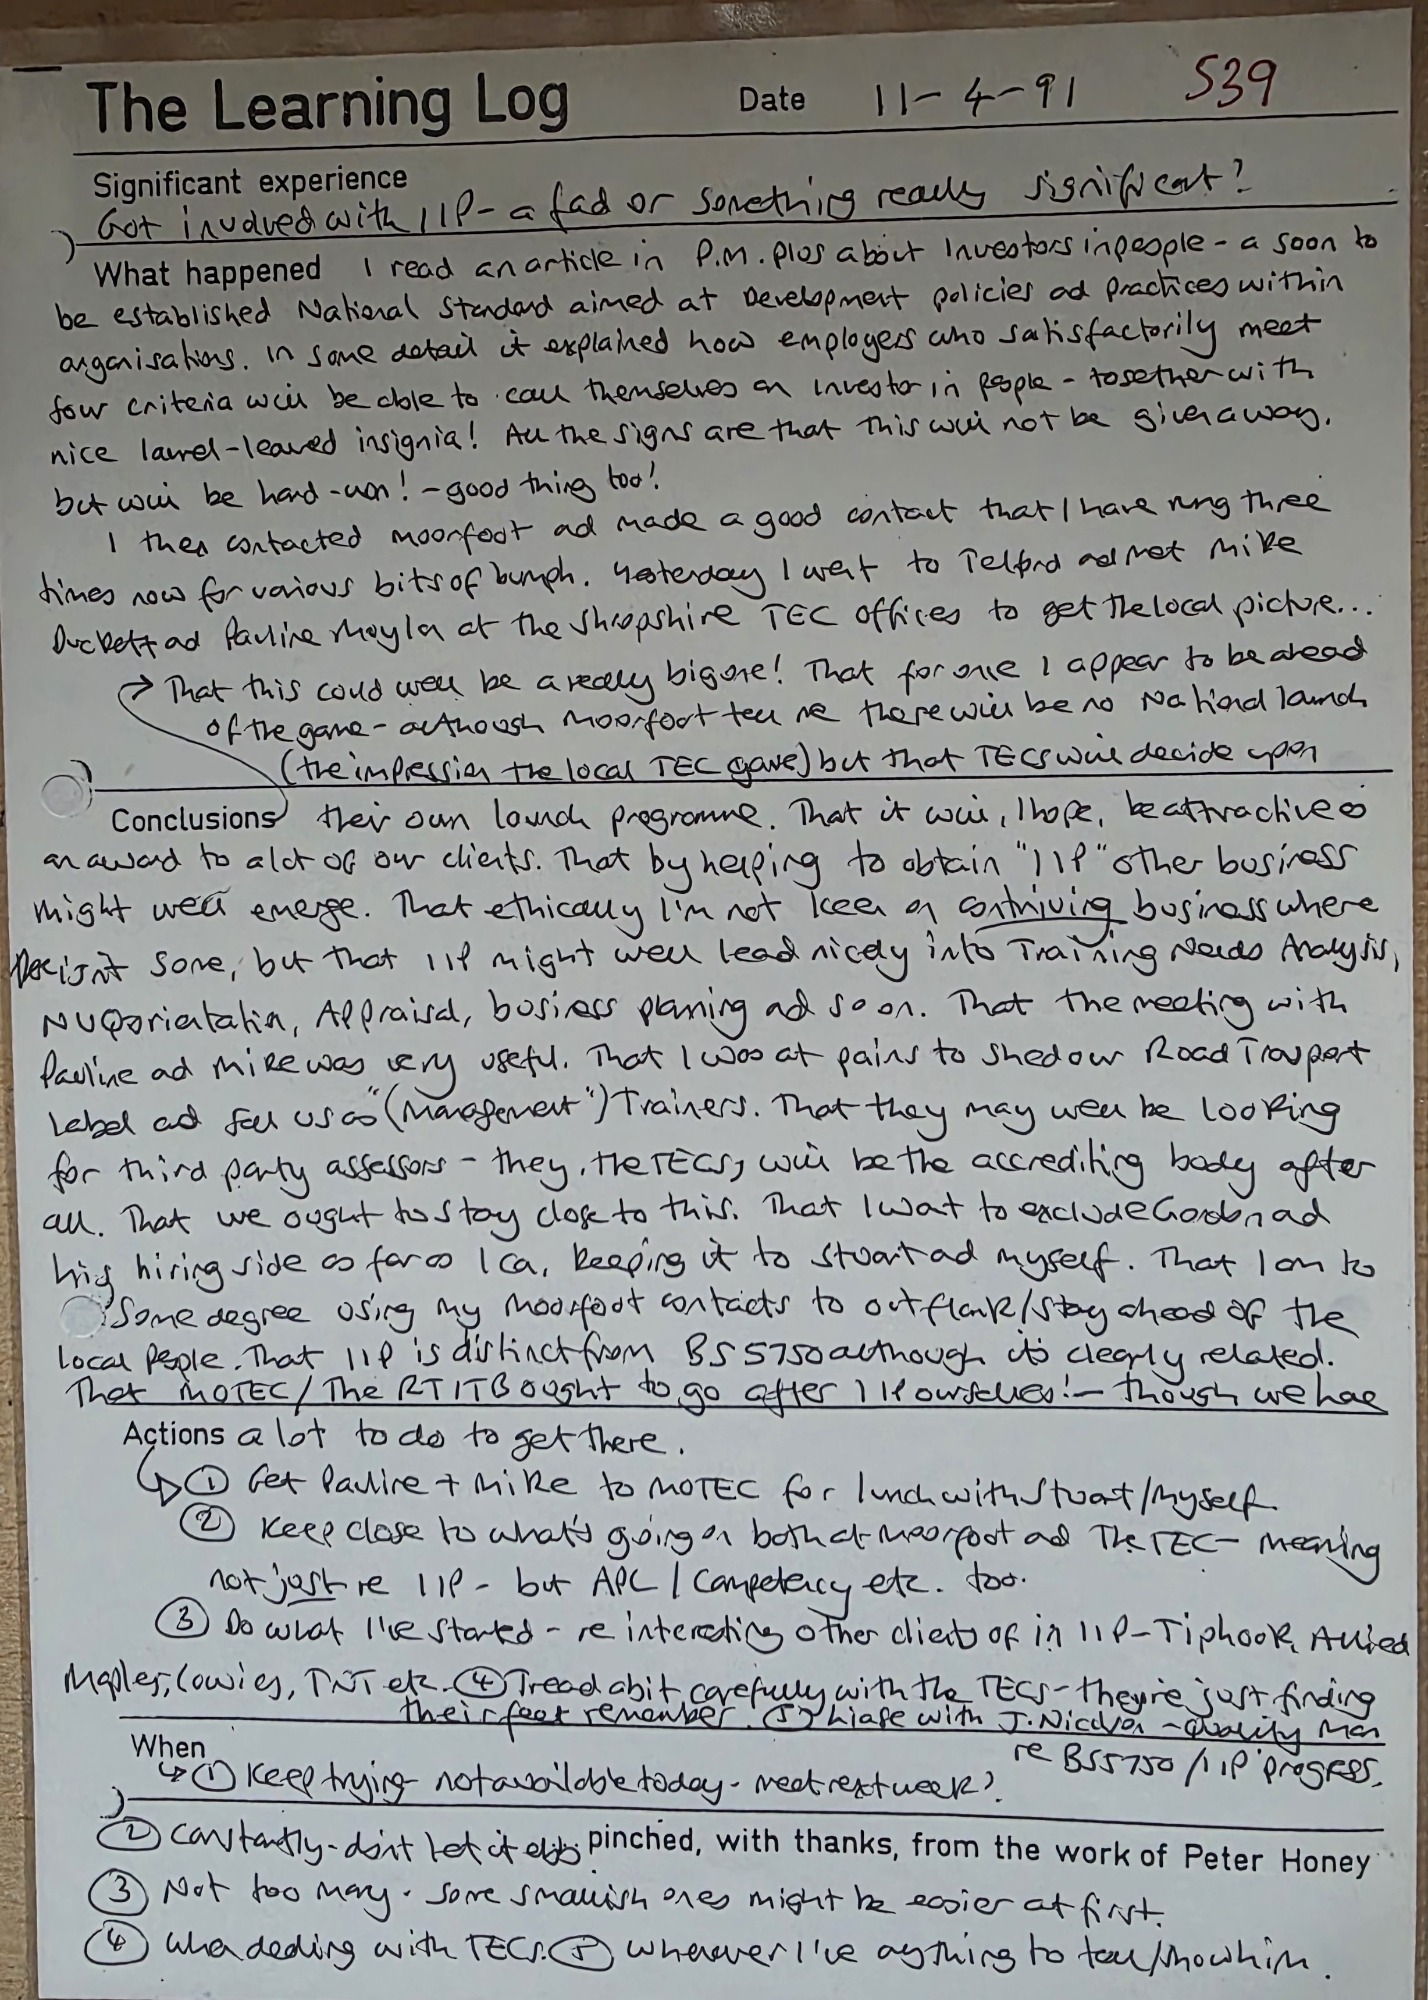 The Learning Log Date 11-4-91 539
Significant experience
Got involved with IIP - a fad or something really significant?
What happened I read an article in P.M. Plus about Investors in people - a soon to
be established National Standard aimed at Development policies ad practices within
organisations. In some detail it explained how employers who satisfactorily meet
four criteria will be able to call themselves an Investor in People - together with
nice laurel-leaved insignia! All the signs are that this will not be given away,
but will be hard-won! - good thing too!
I then contacted Moorfoot ad made a good contact that I have rung three
times now for various bits of bumph. Yesterday I went to Telford ad met Mike
Duckett ad Pauline at the Shropshire TEC offices to get the local picture...
That this could well be a really big one! That for once I appear to be ahead
of the game - although Moorfoot tell me there will be no National launch
(the impression the local TEC gave) but that TECs will decide upon
Conclusions their own launch programme. That it will, I hope, be attractive as
an award to a lot of our clients. That by helping to obtain "IIP" other business
might well emerge. That ethically I'm not keen on contriving business where
there isn't some, but that IIP might well lead nicely into Training Needs Analysis,
NVQ orientation, Appraisal, business planning ad so on. That the meeting with
Pauline ad Mike was very useful. That I was at pains to shed our Road Transport
Label ad sell us as "(Management") Trainers. That they may well be looking
for third party assessors - they, the TECs, will be the accrediting body after
all. That we ought to stay close to this. That I want to exclude Gordon ad
his hiring side as far as I ca, keeping it to Stuart ad myself. That I am to
some degree using my Moorfoot contacts to outflank/stay ahead of the
local people. That IIP is distinct from BS5750 although it's clearly related.
That MOTEC/The RTITB ought to go after IIP ourselves! - though we have
Actions a lot to do to get there.
① Get Pauline + Mike to MOTEC for lunch with Stuart/Myself.
② Keep close to what's going on both at Moorfoot ad The TEC - meaning
not just re IIP - but APL/Competency etc. too.
③ Do what I've started - re interesting other clients of in IIP - Tiphook, Allied
Maples, Cowies, TNT etc. ④ Tread a bit carefully with the TECs - they're just finding
their feet remember. ⑤ Liase with J. Nicolson - Quality Man
re BS5750/IIP progress.
When
① Keep trying - not available today - meet next week?
② Constantly - don't let it ebb pinched, with thanks, from the work of Peter Honey
③ Not too many. Some smallish ones might be easier at first.
④ When dealing with TECs. ⑤ Whenever I've anything to tell/show him.